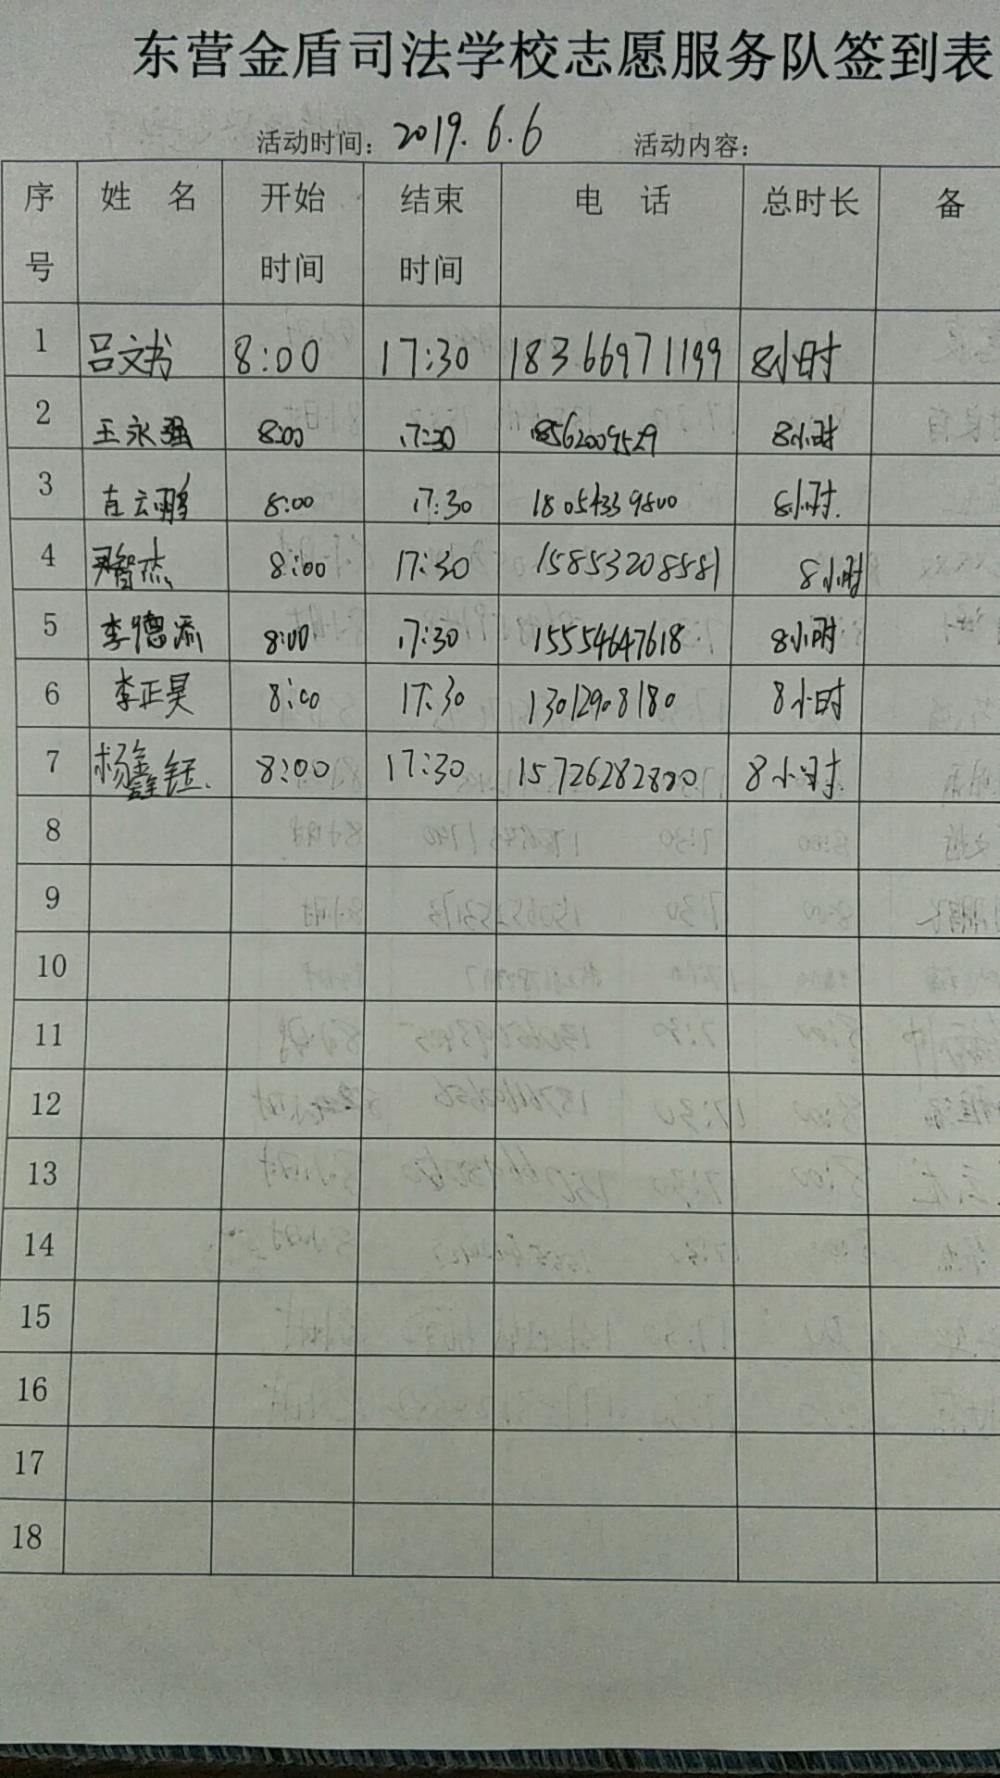 东营金盾司法学校志愿服务队签到表
活动时间：2019.6.6 活动内容：
序号 姓名 开始时间 结束时间 电话 总时长 备
1 吕文书 8:00 17:30 18366971199 8小时
2 王永强 8:00 17:30 18562009529 8小时
3 肖云鹏 8:00 17:30 18054339800 8小时.
4 尹智杰 8:00 17:30 15853208581 8小时
5 李德添 8:00 17:30 15554647618 8小时
6 李正昊 8:00 17:30 13012908180 8小时
7 杨鑫钰. 8:00 17:30 15726282800 8小时.
8
9
10
11
12
13
14
15
16
17
18